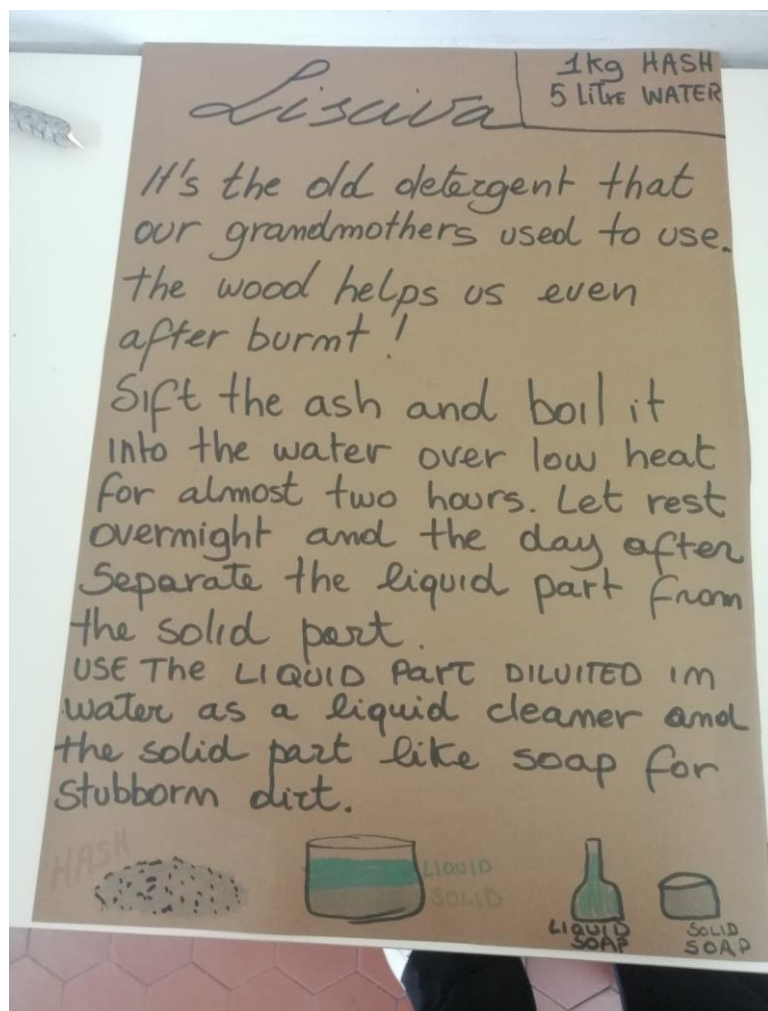 Lisciva
1kg HASH
5 LITRE WATER
It's the old detergent that
our grandmothers used to use.
the wood helps us even
after burnt!
Sift the ash and boil it
into the water over low heat
for almost two hours. Let rest
overnight and the day after
Separate the liquid part from
the solid part.
USE THE LIQUID PART DILUITED in
water as a liquid cleaner and
the solid part like soap for
stubborn dirt.
HASH
LIQUID
SOLID
LIQUID
SOAP
SOLID
SOAP